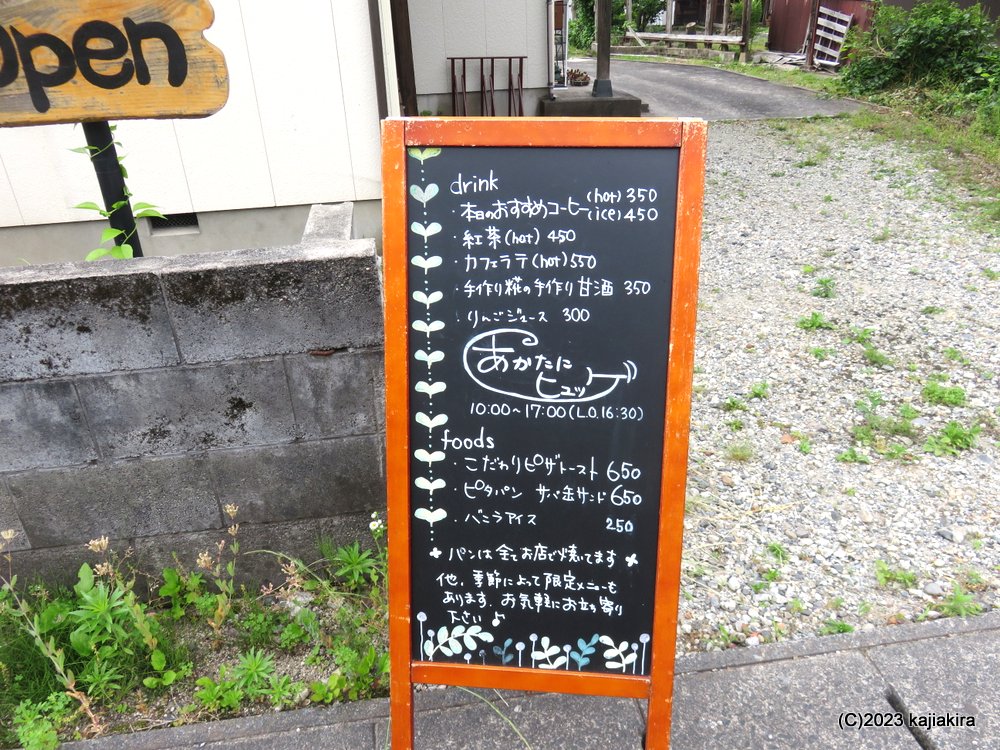 open
drink
・本日のおすすめコーヒー(hot) 350
(ice) 450
・紅茶(hot) 450
・カフェラテ(hot) 550
・手作り糀の手作り甘酒 350
・りんごジュース 300
あがたに
ヒュッ
10:00〜17:00(L.O.16:30)
foods
・こだわりピザトースト 650
・ピタパン サバ缶サンド 650
・バニラアイス 250
パンは全てお店で焼いてます
他、季節によって限定メニューも
あります。お気軽にお立ち寄り
下さい♪
(C)2023 kajiakira